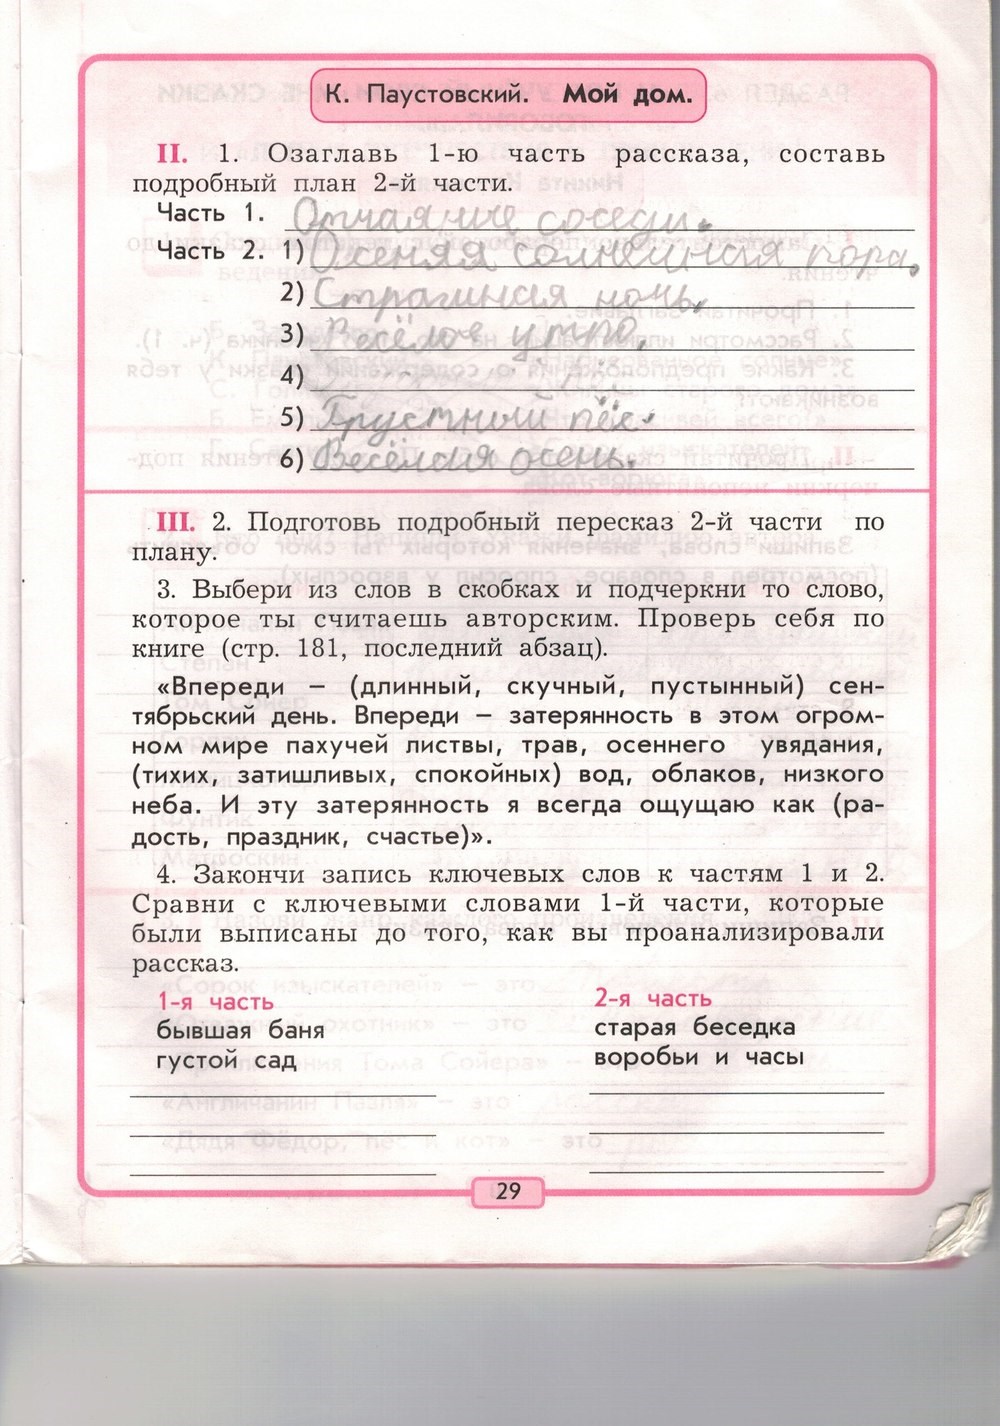 К. Паустовский. Мой дом.
II. 1. Озаглавь 1-ю часть рассказа, составь
подробный план 2-й части.
Часть 1. соседи.
Часть 2. 1) солнечная пора.
2) Страшная ночь.
3) Весёлое утро.
4)
5) Грустный пёс.
6) Весёлая осень.
III. 2. Подготовь подробный пересказ 2-й части по
плану.
3. Выбери из слов в скобках и подчеркни то слово,
которое ты считаешь авторским. Проверь себя по
книге (стр. 181, последний абзац).
«Впереди – (длинный, скучный, пустынный) сен-
тябрьский день. Впереди – затерянность в этом огром-
ном мире пахучей листвы, трав, осеннего увядания,
(тихих, затишливых, спокойных) вод, облаков, низкого
неба. И эту затерянность я всегда ощущаю как (ра-
дость, праздник, счастье)».
4. Закончи запись ключевых слов к частям 1 и 2.
Сравни с ключевыми словами 1-й части, которые
были выписаны до того, как вы проанализировали
рассказ.
1-я часть
бывшая баня
густой сад
2-я часть
старая беседка
воробьи и часы
29